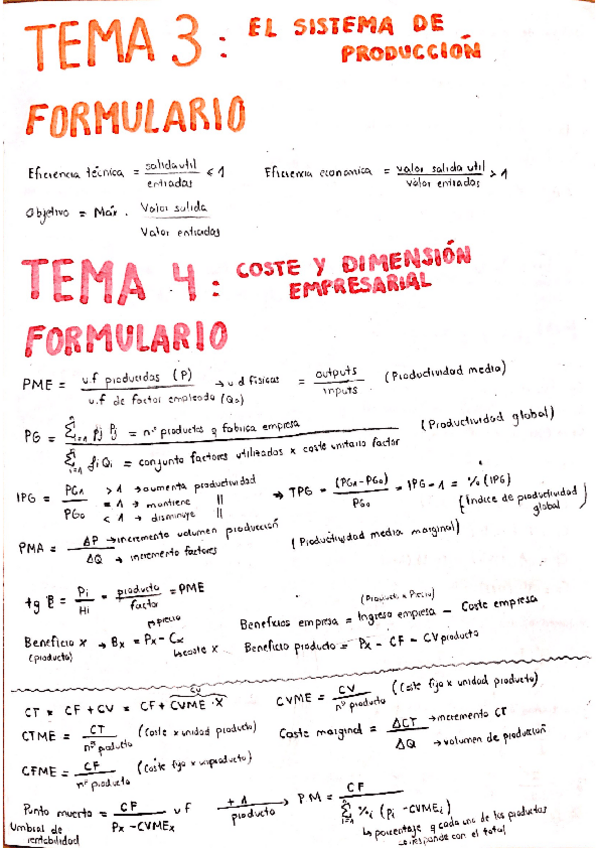 TEMA 3 : EL SISTEMA DE PRODUCCIÓN
FORMULARIO
Eficiencia técnica = salida util / entradas < 1     Eficiencia economica = valor salida util / valor entradas > 1
Objetivo = Máx. Valor salida / Valor entradas
TEMA 4 : COSTE Y DIMENSIÓN EMPRESARIAL
FORMULARIO
PME = u.f producidas (P) / u.f de factor empleado (Q0) → u d físicas = outputs / inputs (Productividad media)
PG = Σ pj Pj = nº productos q fabrica empresa / Σ fi Qi = conjunto factores utilizados x coste unitario factor (Productividad global)
IPG = PG1 / PG0 > 1 → aumenta productividad
= 1 → mantiene ||
< 1 → disminuye ||
⇒ TPG = (PG1 - PG0) / PG0 = IPG - 1 = % (IPG)
(Índice de productividad global)
PMA = ΔP → incremento volumen producción / ΔQ → incremento factores (Productividad media marginal)
tg = Pi / Hi = producto / factor = PME
Beneficio x → Bx = Px - Cx
(producto)
precio
coste x
(Producti. x Precio)
Beneficios empresa = Ingreso empresa - Coste empresa
Beneficio producto = Px - CF - CV producto
CT = CF + CV = CF + CVME · X
CV
CVME = CV / nº producto (Coste fijo x unidad producto)
CTME = CT / nº producto (Coste x unidad producto)
Coste marginal = ΔCT → incremento CT / ΔQ → volumen de producción
CFME = CF / nº producto (Coste fijo x u producto)
Punto muerto = CF / Px - CVMEx u f
Umbral de rentabilidad
+ 1 producto → PM = CF / Σ %i (Pi - CVMEi)
↳ porcentaje q cada uno de los productos
con el total